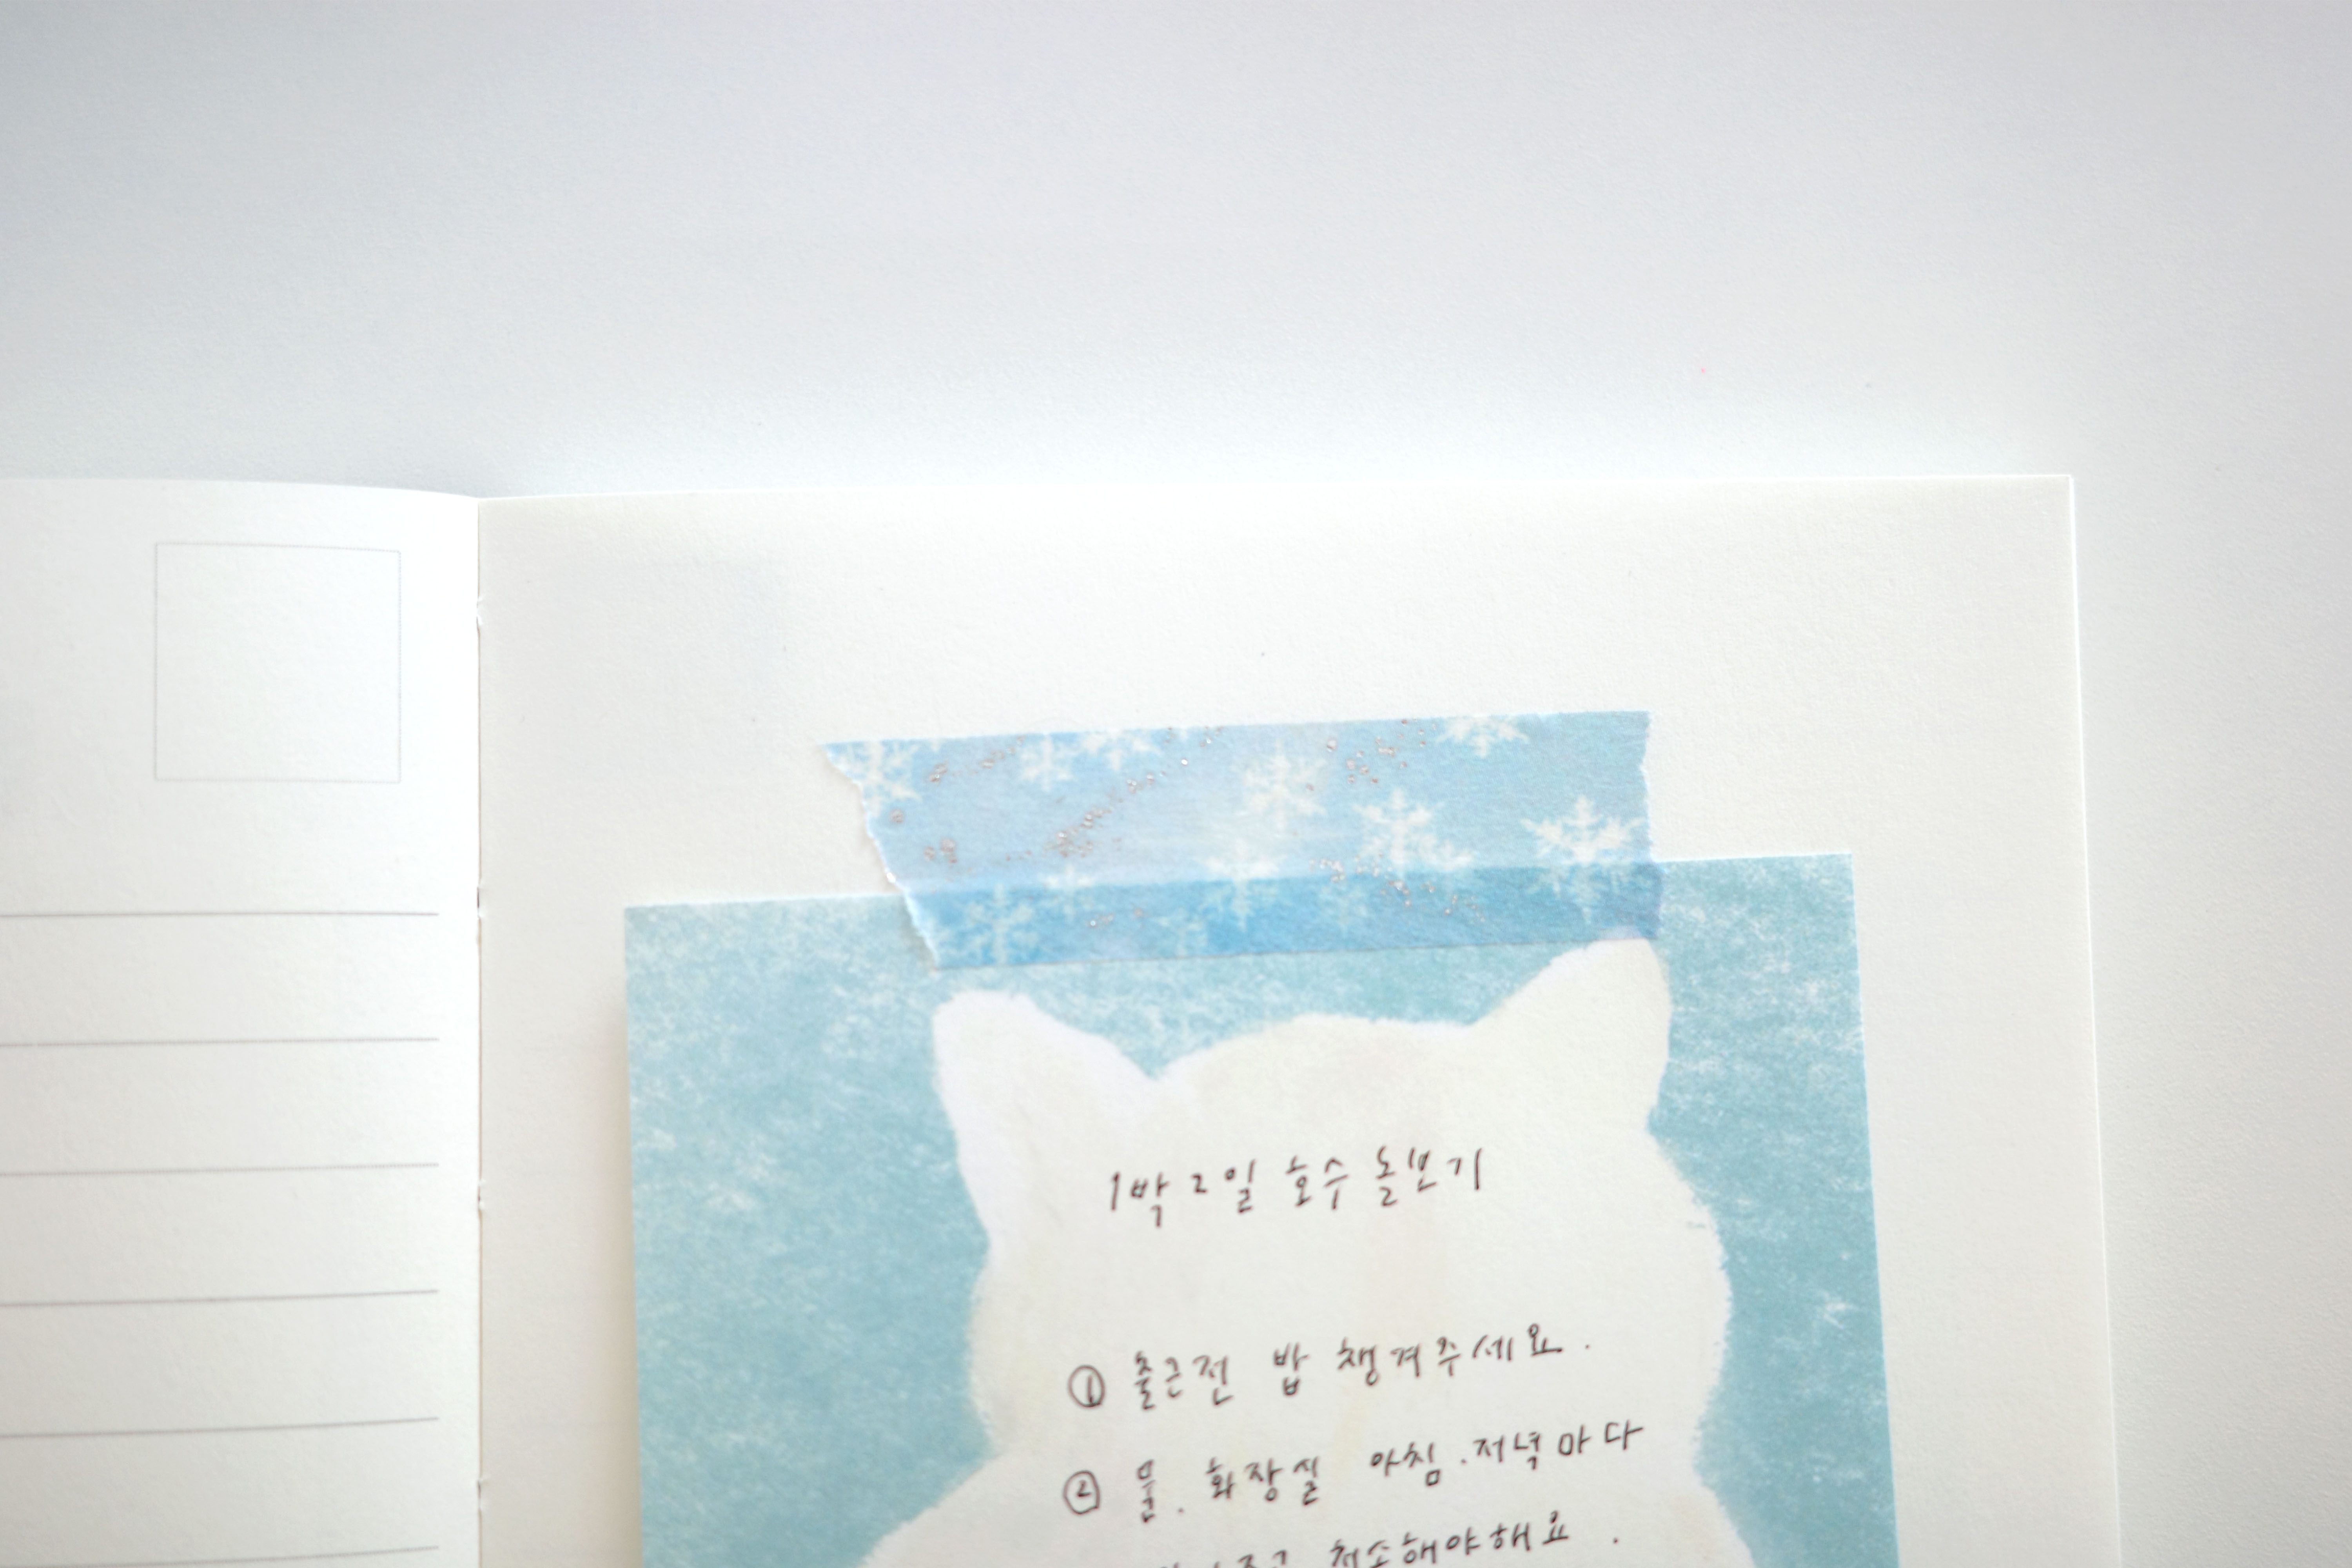 1박 2일 호수 돌보기
① 출근전 밥 챙겨주세요.
② 물. 화장실 아침.저녁마다
청소해야해요.